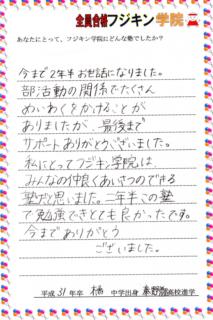 全員合格フジキン学院
あなたにとって、フジキン学院はどんな塾でしたか？
今まで2年半お世話になりました。
部活動の関係でたくさん
めいわくをかけることが
ありましたが、最後まで
サポートありがとうございました。
私にとってフジキン学院は、
みんなの仲良くあいさつのできる
塾だと思いました。二年半この塾
で勉強できとても良かったです。
今までありがとう
ございました。
平成 31 年卒 橘 中学出身 高校進学